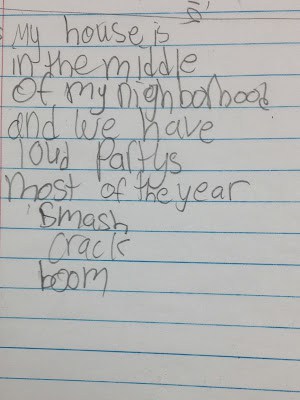 My house is
in the middle
Of my nighborhood
and we have
loud Partys
most of the year
Smash
crack
boom